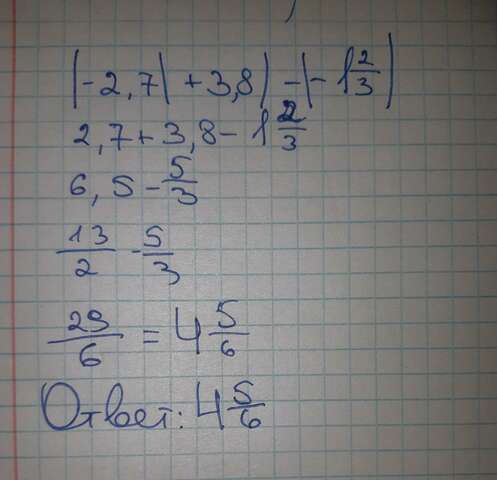 |-2,7| + 3,8| - |- 1 2/3|
2,7 + 3,8 - 1 2/3
6,5 - 5/3
13/2 - 5/3
29/6 = 4 5/6
Ответ: 4 5/6